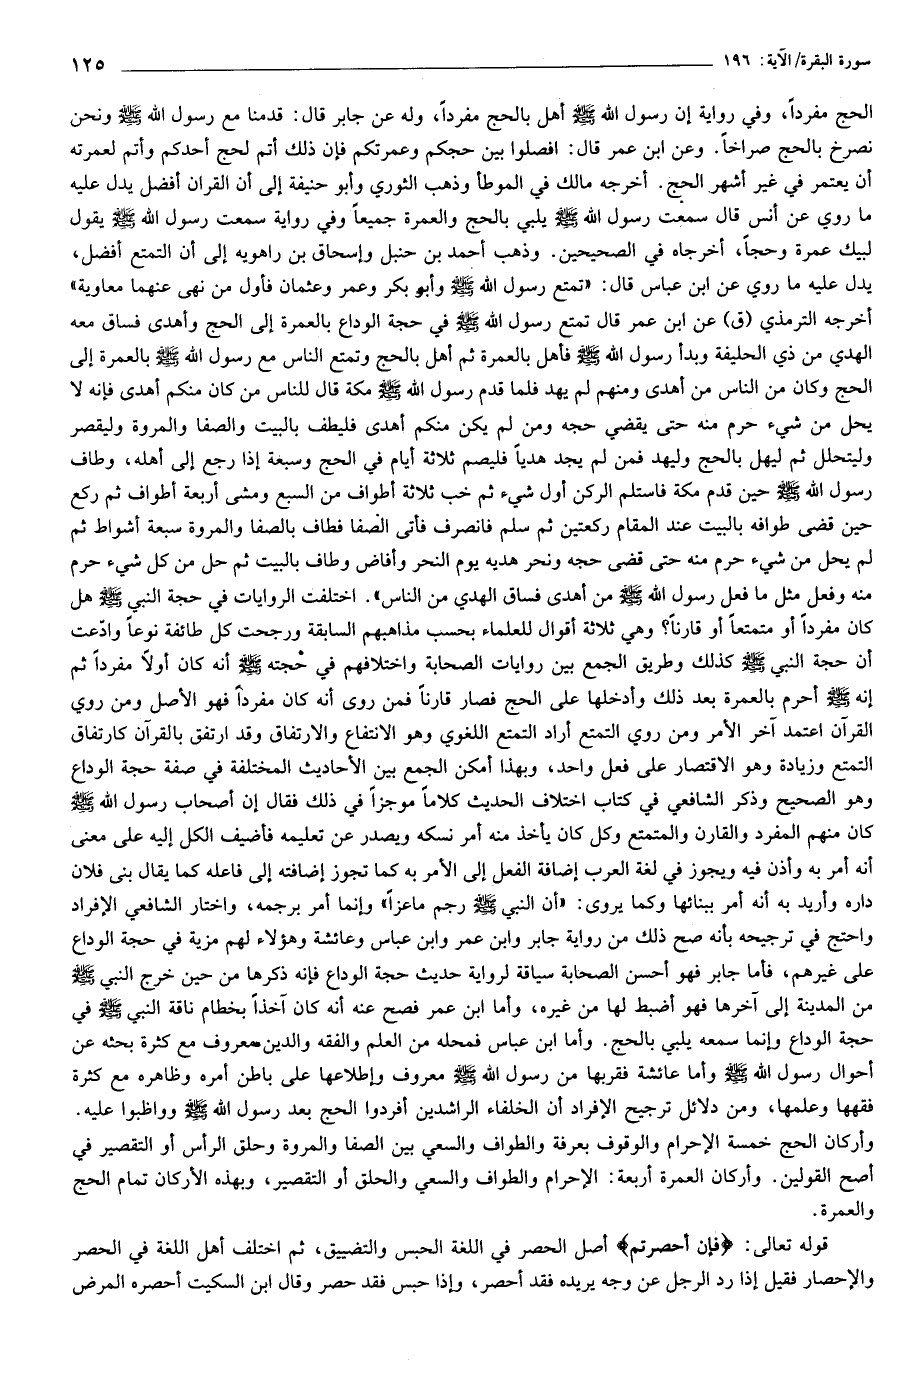 سورة البقرة/ الآية: ١٩٦ ١٢٥
الحج مفرداً، وفي رواية إن رسول الله ﷺ أهل بالحج مفرداً، وله عن جابر قال: قدمنا مع رسول الله ﷺ ونحن
نصرخ بالحج صراخاً. وعن ابن عمر قال: افصلوا بين حجكم وعمرتكم فإن ذلك أتم لحج أحدكم وأتم لعمرته
أن يعتمر في غير أشهر الحج. أخرجه مالك في الموطأ وذهب الثوري وأبو حنيفة إلى أن القران أفضل يدل عليه
ما روي عن أنس قال سمعت رسول الله ﷺ يلبي بالحج والعمرة جميعاً وفي رواية سمعت رسول الله ﷺ يقول
لبيك عمرة وحجاً، أخرجاه في الصحيحين. وذهب أحمد بن حنبل وإسحاق بن راهويه إلى أن التمتع أفضل،
يدل عليه ما روي عن ابن عباس قال: «تمتع رسول الله ﷺ وأبو بكر وعمر وعثمان فأول من نهى عنهما معاوية»
أخرجه الترمذي (ق) عن ابن عمر قال تمتع رسول الله ﷺ في حجة الوداع بالعمرة إلى الحج وأهدى فساق معه
الهدي من ذي الحليفة وبدأ رسول الله ﷺ فأهل بالعمرة ثم أهل بالحج وتمتع الناس مع رسول الله ﷺ بالعمرة إلى
الحج وكان من الناس من أهدى ومنهم لم يهد فلما قدم رسول الله ﷺ مكة قال للناس من كان منكم أهدى فإنه لا
يحل من شيء حرم منه حتى يقضي حجه ومن لم يكن منكم أهدى فليطف بالبيت والصفا والمروة وليقصر
وليتحلل ثم ليهل بالحج وليهد فمن لم يجد هدياً فليصم ثلاثة أيام في الحج وسبعة إذا رجع إلى أهله، وطاف
رسول الله ﷺ حين قدم مكة فاستلم الركن أول شيء ثم خب ثلاثة أطواف من السبع ومشى أربعة أطواف ثم ركع
حين قضى طوافه بالبيت عند المقام ركعتين ثم سلم فانصرف فأتى الصفا فطاف بالصفا والمروة سبعة أشواط ثم
لم يحل من شيء حرم منه حتى قضى حجه ونحر هديه يوم النحر وأفاض وطاف بالبيت ثم حل من كل شيء حرم
منه وفعل مثل ما فعل رسول الله ﷺ من أهدى فساق الهدي من الناس». اختلفت الروايات في حجة النبي ﷺ هل
كان مفرداً أو متمتعاً أو قارناً؟ وهي ثلاثة أقوال للعلماء بحسب مذاهبهم السابقة ورجحت كل طائفة نوعاً وادّعت
أن حجة النبي ﷺ كذلك وطريق الجمع بين روايات الصحابة واختلافهم في حجته ﷺ أنه كان أولاً مفرداً ثم
إنه ﷺ أحرم بالعمرة بعد ذلك وأدخلها على الحج فصار قارناً فمن روى أنه كان مفرداً فهو الأصل ومن روي
القرآن اعتمد آخر الأمر ومن روي التمتع أراد التمتع اللغوي وهو الانتفاع والارتفاق وقد ارتفق بالقرآن كارتفاق
التمتع وزيادة وهو الاقتصار على فعل واحد، وبهذا أمكن الجمع بين الأحاديث المختلفة في صفة حجة الوداع
وهو الصحيح وذكر الشافعي في كتاب اختلاف الحديث كلاماً موجزاً في ذلك فقال إن أصحاب رسول الله ﷺ
كان منهم المفرد والقارن والمتمتع وكل كان يأخذ منه أمر نسكه ويصدر عن تعليمه فأضيف الكل إليه على معنى
أنه أمر به وأذن فيه ويجوز في لغة العرب إضافة الفعل إلى الأمر به كما تجوز إضافته إلى فاعله كما يقال بنى فلان
داره وأريد به أنه أمر ببنائها وكما يروى: «أن النبي ﷺ رجم ماعزاً» وإنما أمر برجمه، واختار الشافعي الإفراد
واحتج في ترجيحه بأنه صح ذلك من رواية جابر وابن عمر وابن عباس وعائشة وهؤلاء لهم مزية في حجة الوداع
على غيرهم، فأما جابر فهو أحسن الصحابة سياقة لرواية حديث حجة الوداع فإنه ذكرها من حين خرج النبي ﷺ
من المدينة إلى آخرها فهو أضبط لها من غيره، وأما ابن عمر فصح عنه أنه كان آخذاً بخطام ناقة النبي ﷺ في
حجة الوداع وإنما سمعه يلبي بالحج. وأما ابن عباس فمحله من العلم والفقه والدين معروف مع كثرة بحثه عن
أحوال رسول الله ﷺ وأما عائشة فقربها من رسول الله ﷺ معروف وإطلاعها على باطن أمره وظاهره مع كثرة
فقهها وعلمها، ومن دلائل ترجيح الإفراد أن الخلفاء الراشدين أفردوا الحج بعد رسول الله ﷺ وواظبوا عليه.
وأركان الحج خمسة الإحرام والوقوف بعرفة والطواف والسعي بين الصفا والمروة وحلق الرأس أو التقصير في
أصح القولين. وأركان العمرة أربعة: الإحرام والطواف والسعي والحلق أو التقصير، وبهذه الأركان تمام الحج
والعمرة.
قوله تعالى: ﴿فإن أحصرتم﴾ أصل الحصر في اللغة الحبس والتضييق، ثم اختلف أهل اللغة في الحصر
والإحصار فقيل إذا رد الرجل عن وجه يريده فقد أحصر، وإذا حبس فقد حصر وقال ابن السكيت أحصره المرض